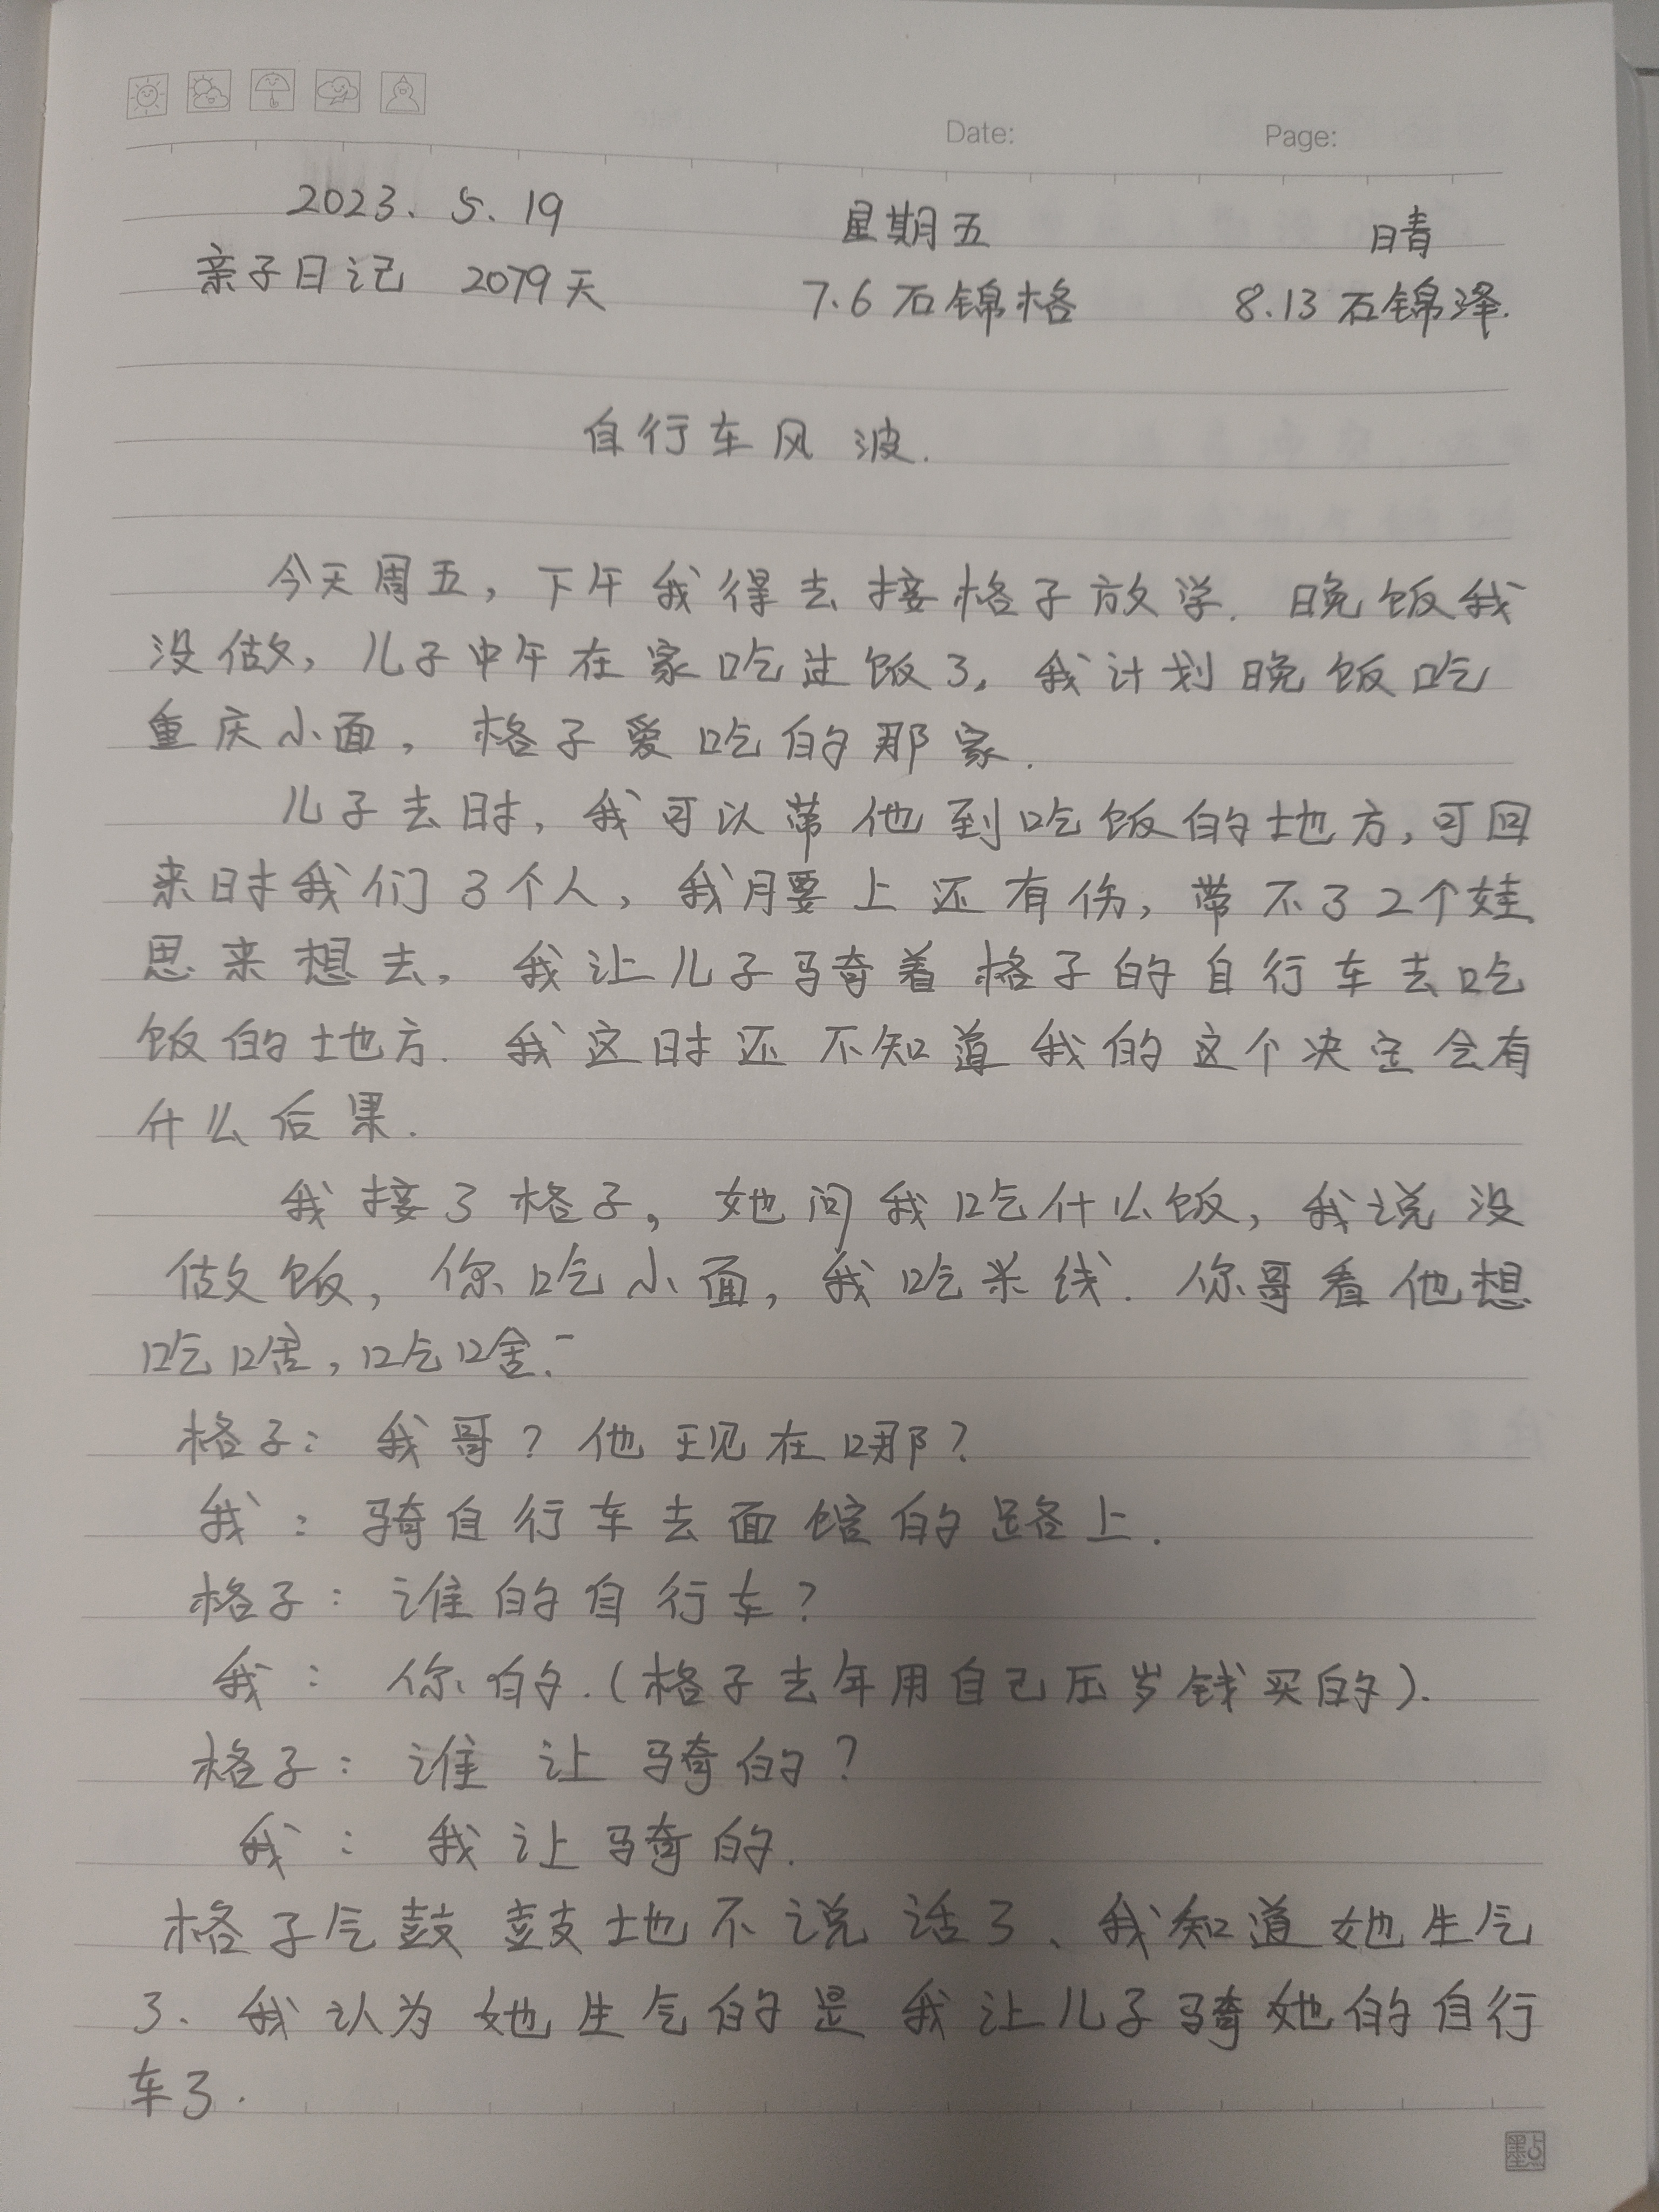 Date: Page:
2023. 5. 19 星期五 晴
亲子日记 2079天 7.6 石锦格 8.13 石锦泽.
自行车风波.
今天周五,下午我得去接格子放学. 晚饭我
没做,儿子中午在家吃过饭了。我计划晚饭吃
重庆小面,格子爱吃的那家.
儿子去时,我可以带他到吃饭的地方,可回
来时我们3个人,我腰上还有伤,带不了2个娃
思来想去,我让儿子骑着格子的自行车去吃
饭的地方. 我这时还不知道我的这个决定会有
什么后果.
我接了格子,她问我吃什么饭,我说没
做饭,你吃小面,我吃米线. 你哥看他想
吃啥,吃啥.
格子: 我哥? 他现在哪?
我: 骑自行车去面馆的路上.
格子: 谁的自行车?
我: 你的.(格子去年用自己压岁钱买的).
格子: 谁让骑的?
我: 我让骑的.
格子气鼓鼓地不说话了、我知道她生气
了、我认为她生气的是我让儿子骑她的自行
车了.
墨点